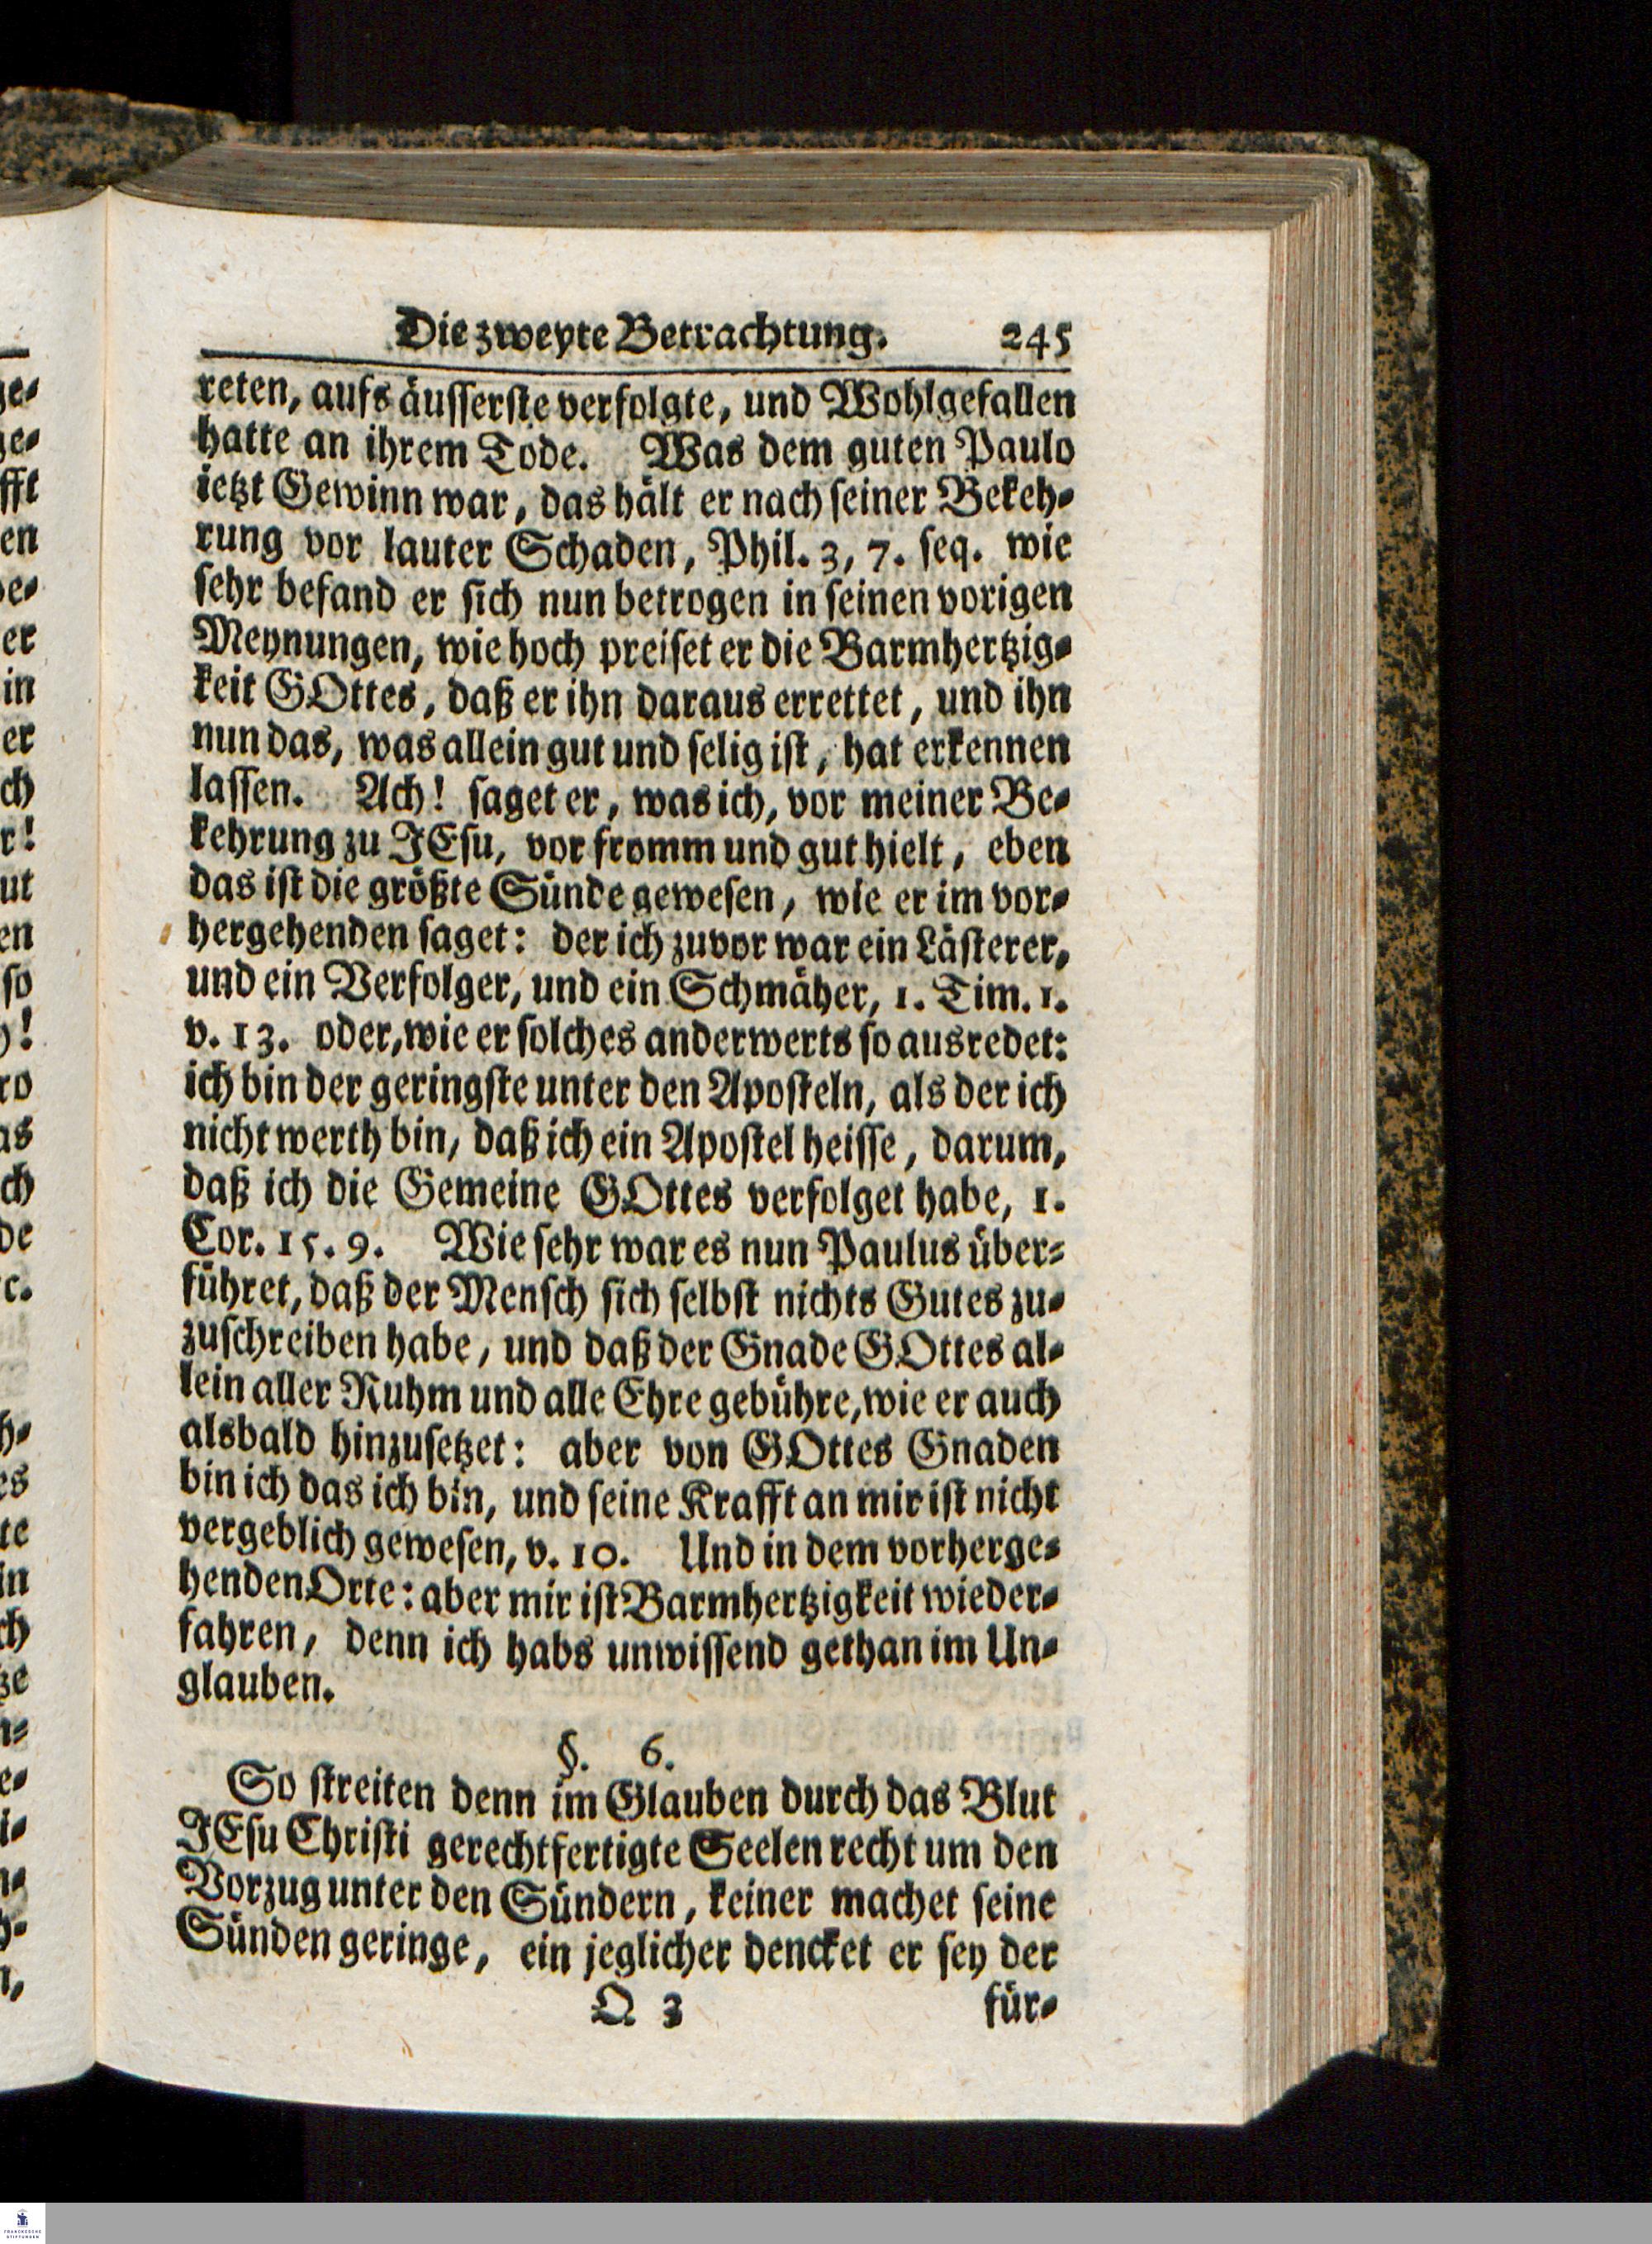 Die zweyte Betrachtung. 245
reten, aufs äusserste verfolgte, und Wohlgefallen
hatte an ihrem Tode. Was dem guten Paulo
ietzt Gewinn war, das hält er nach seiner Bekeh-
rung vor lauter Schaden, Phil. 3, 7. seq. wie
sehr befand er sich nun betrogen in seinen vorigen
Meynungen, wie hoch preiset er die Barmhertzig-
keit GOttes, daß er ihn daraus errettet, und ihn
nun das, was allein gut und selig ist, hat erkennen
lassen. Ach! saget er, was ich, vor meiner Be-
kehrung zu JEsu, vor fromm und gut hielt, eben
das ist die größte Sünde gewesen, wie er im vor-
hergehenden saget: der ich zuvor war ein Lästerer,
und ein Verfolger, und ein Schmäher, 1. Tim. 1.
v. 13. oder, wie er solches anderwerts so ausredet:
ich bin der geringste unter den Aposteln, als der ich
nicht werth bin, daß ich ein Apostel heisse, darum,
daß ich die Gemeine GOttes verfolget habe, 1.
Cor. 15. 9. Wie sehr war es nun Paulus über-
führet, daß der Mensch sich selbst nichts Gutes zu-
zuschreiben habe, und daß der Gnade GOttes al-
lein aller Ruhm und alle Ehre gebühre, wie er auch
alsbald hinzusetzet: aber von GOttes Gnaden
bin ich das ich bin, und seine Krafft an mir ist nicht
vergeblich gewesen, v. 10. Und in dem vorherge-
henden Orte: aber mir ist Barmhertzigkeit wieder-
fahren, denn ich habs unwissend gethan im Un-
glauben.
§. 6.
So streiten denn im Glauben durch das Blut
JEsu Christi gerechtfertigte Seelen recht um den
Vorzug unter den Sündern, keiner machet seine
Sünden geringe, ein jeglicher dencket er sey der
Q 3 für-
FRANCKESCHE
STIFTUNGEN